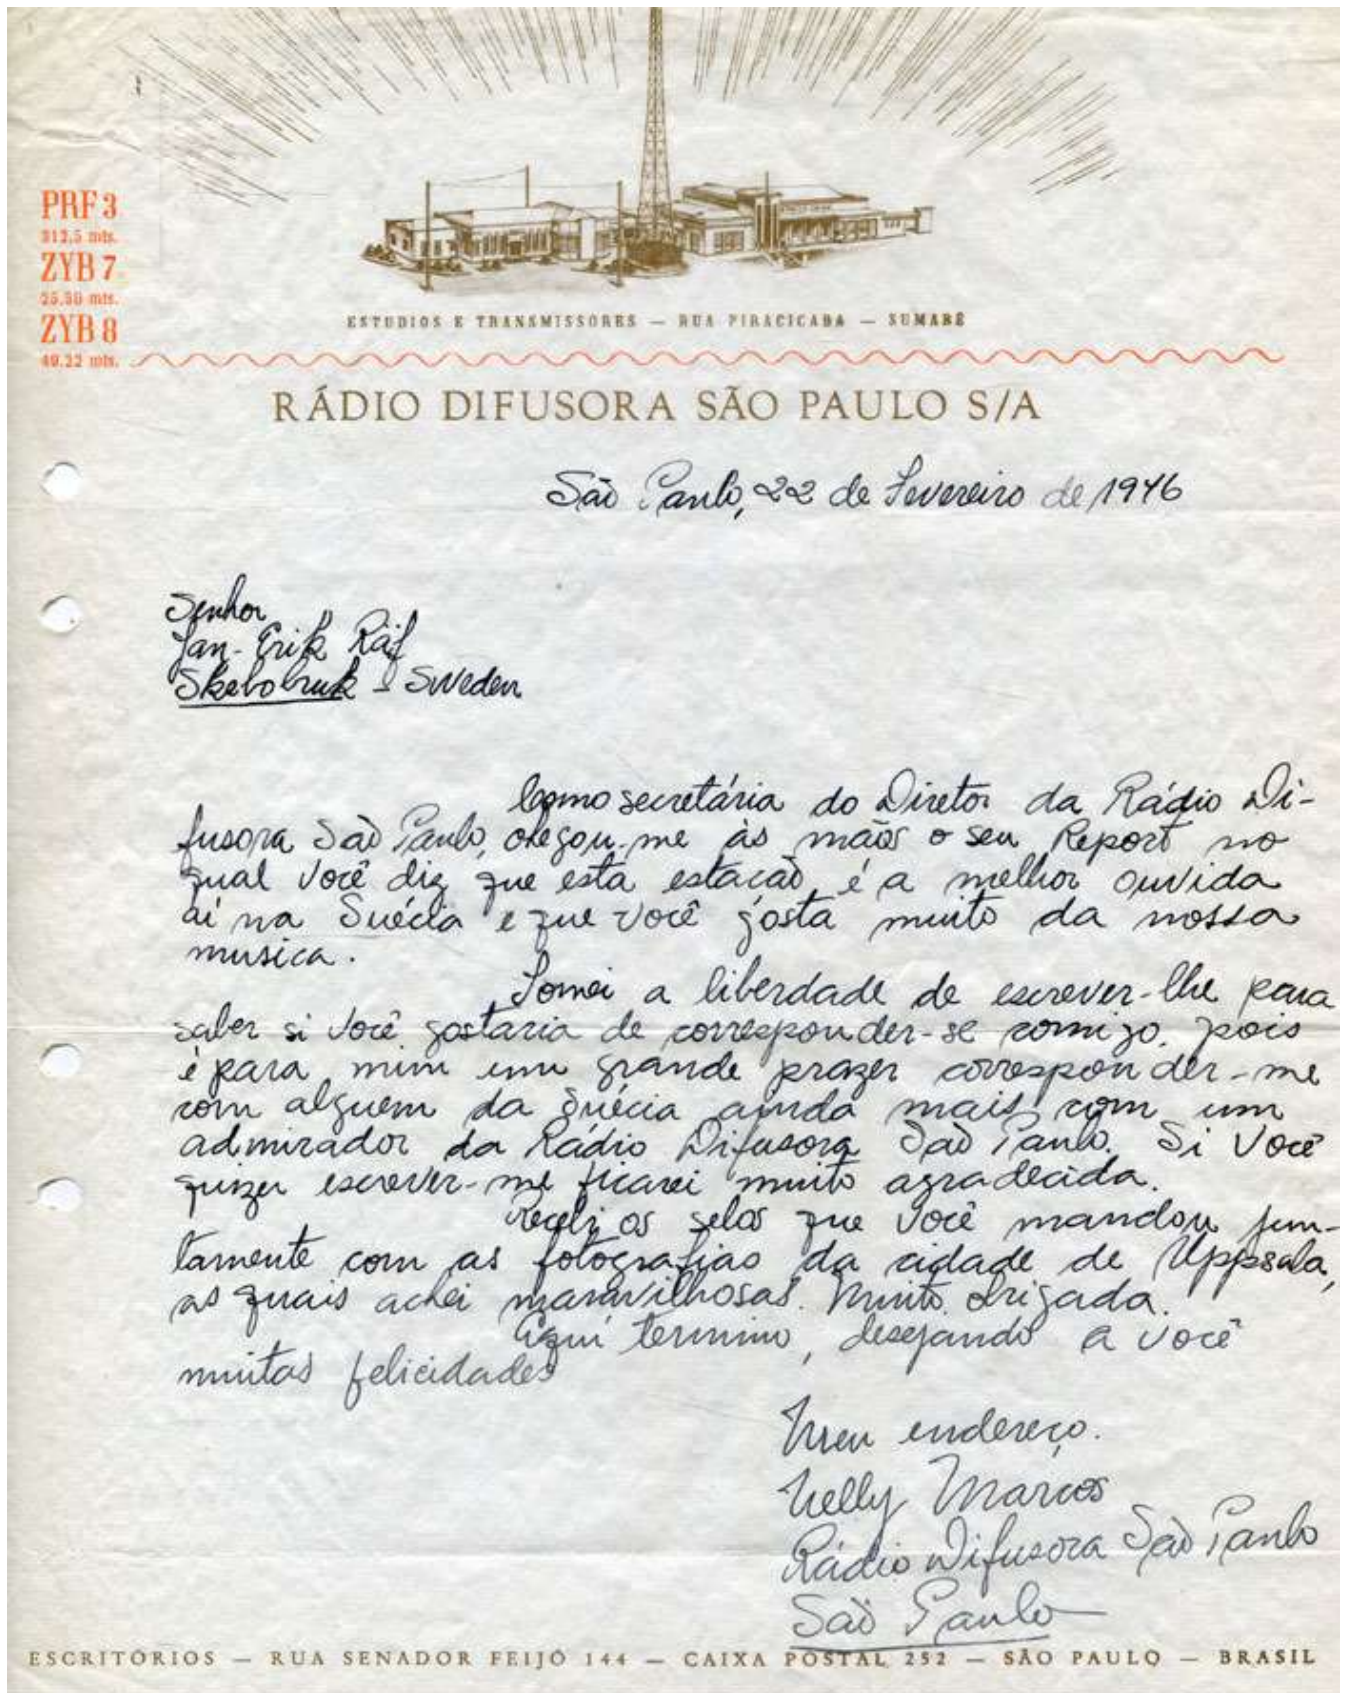 PRF 3
312,5 mts.
ZYB 7
25,50 mts.
ZYB 8
49.22 mts.
ESTUDIOS E TRANSMISSORES — RUA PIRACICABA — SUMARÉ
RÁDIO DIFUSORA SÃO PAULO S/A
São Paulo, 22 de Fevereiro de 1946
Senhor
Jan-Erik Räf
Skebobruk - Sweden
Como secretária do Diretor da Rádio Di-
fusora São Paulo, chegou-me às mãos o seu Report no
qual você diz que esta estacão é a melhor ouvida
aí na Suécia e que você gosta muito da nossa
musica.
Tomei a liberdade de escrever-lhe para
saber si você gostaria de corresponder-se comigo, pois
é para mim um grande prazer corresponder-me
com alguem da Suécia ainda mais com um
admirador da Rádio Difusora São Paulo. Si você
quizer escrever-me ficarei muito agradecida.
Recebi os selos que você mandou jun-
tamente com as fotografias da cidade de Uppsala,
as quais achei maravilhosas. Muito obrigada.
Aqui termino, desejando a você
muitas felicidades
Meu endereço.
Nelly Marcos
Rádio Difusora São Paulo
São Paulo
ESCRITÓRIOS — RUA SENADOR FEIJÓ 144 — CAIXA POSTAL 252 — SÃO PAULO — BRASIL